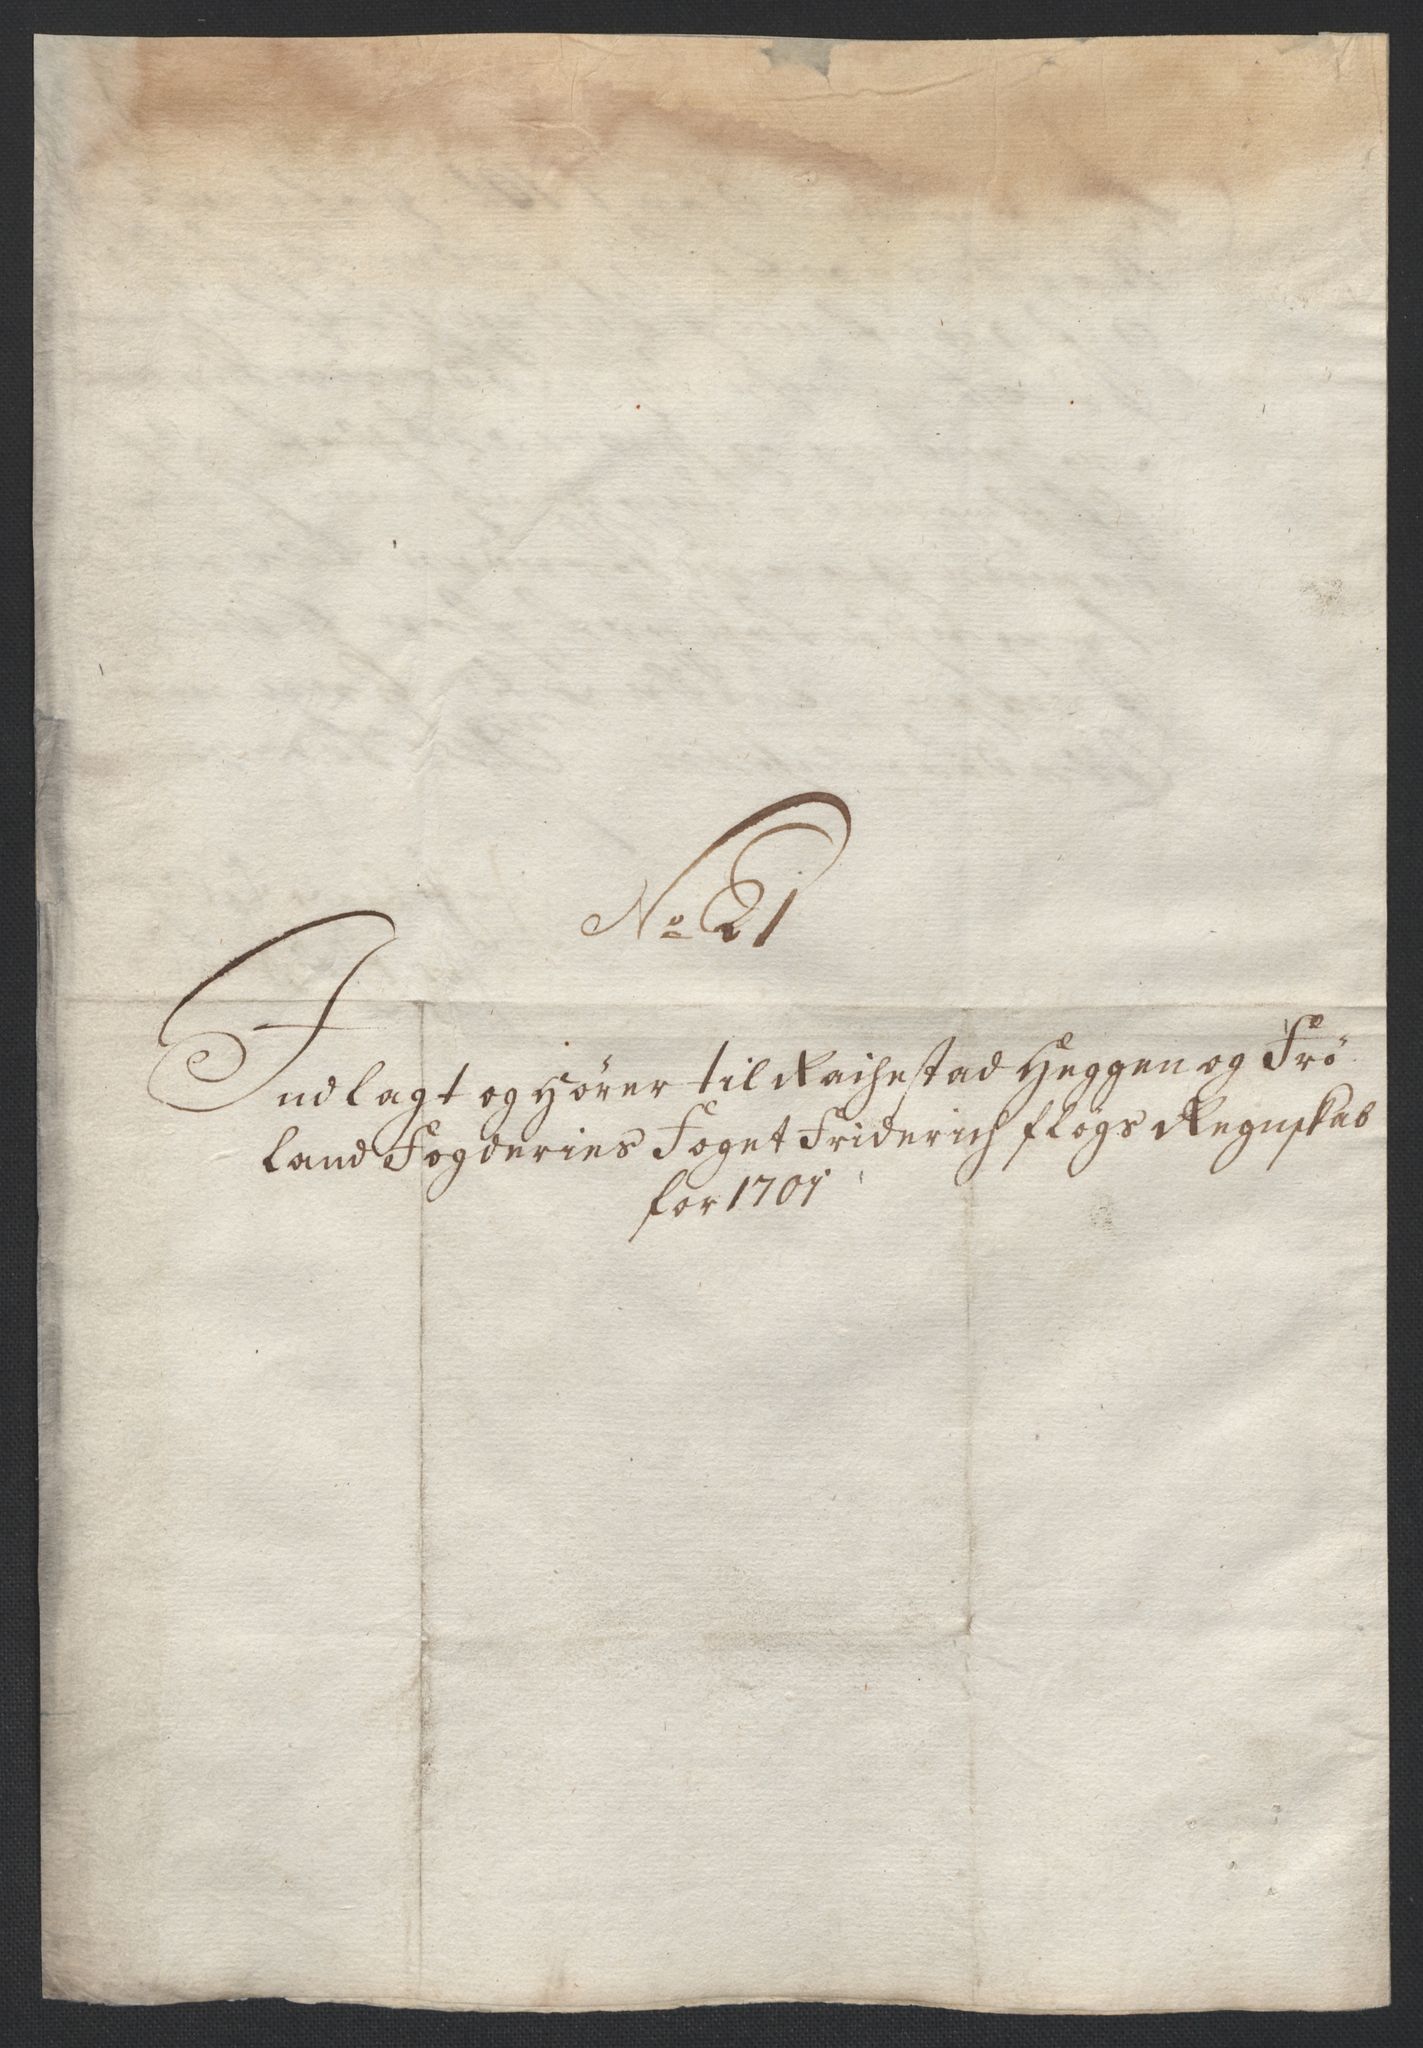 No 21
Indlagt og Hörer til Rachestad Heggen og Frö
land Fogderies Foget Friderich flögs Regnskab
for 1701